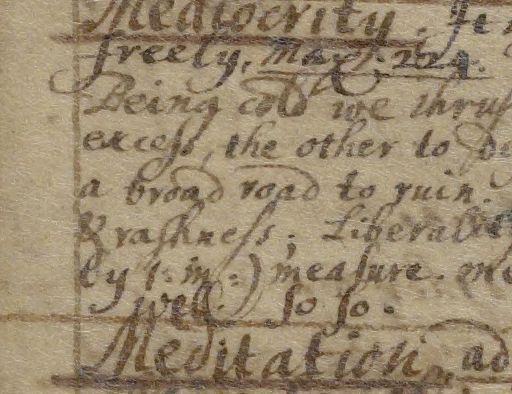 Mediocrity. It
freely, Max. 224.
Being cold we thrus
excess, the other to de
a broad road to ruin.
& rashness; Liberalit
ly i. m.) measure. me
well. So so.
Meditation ad